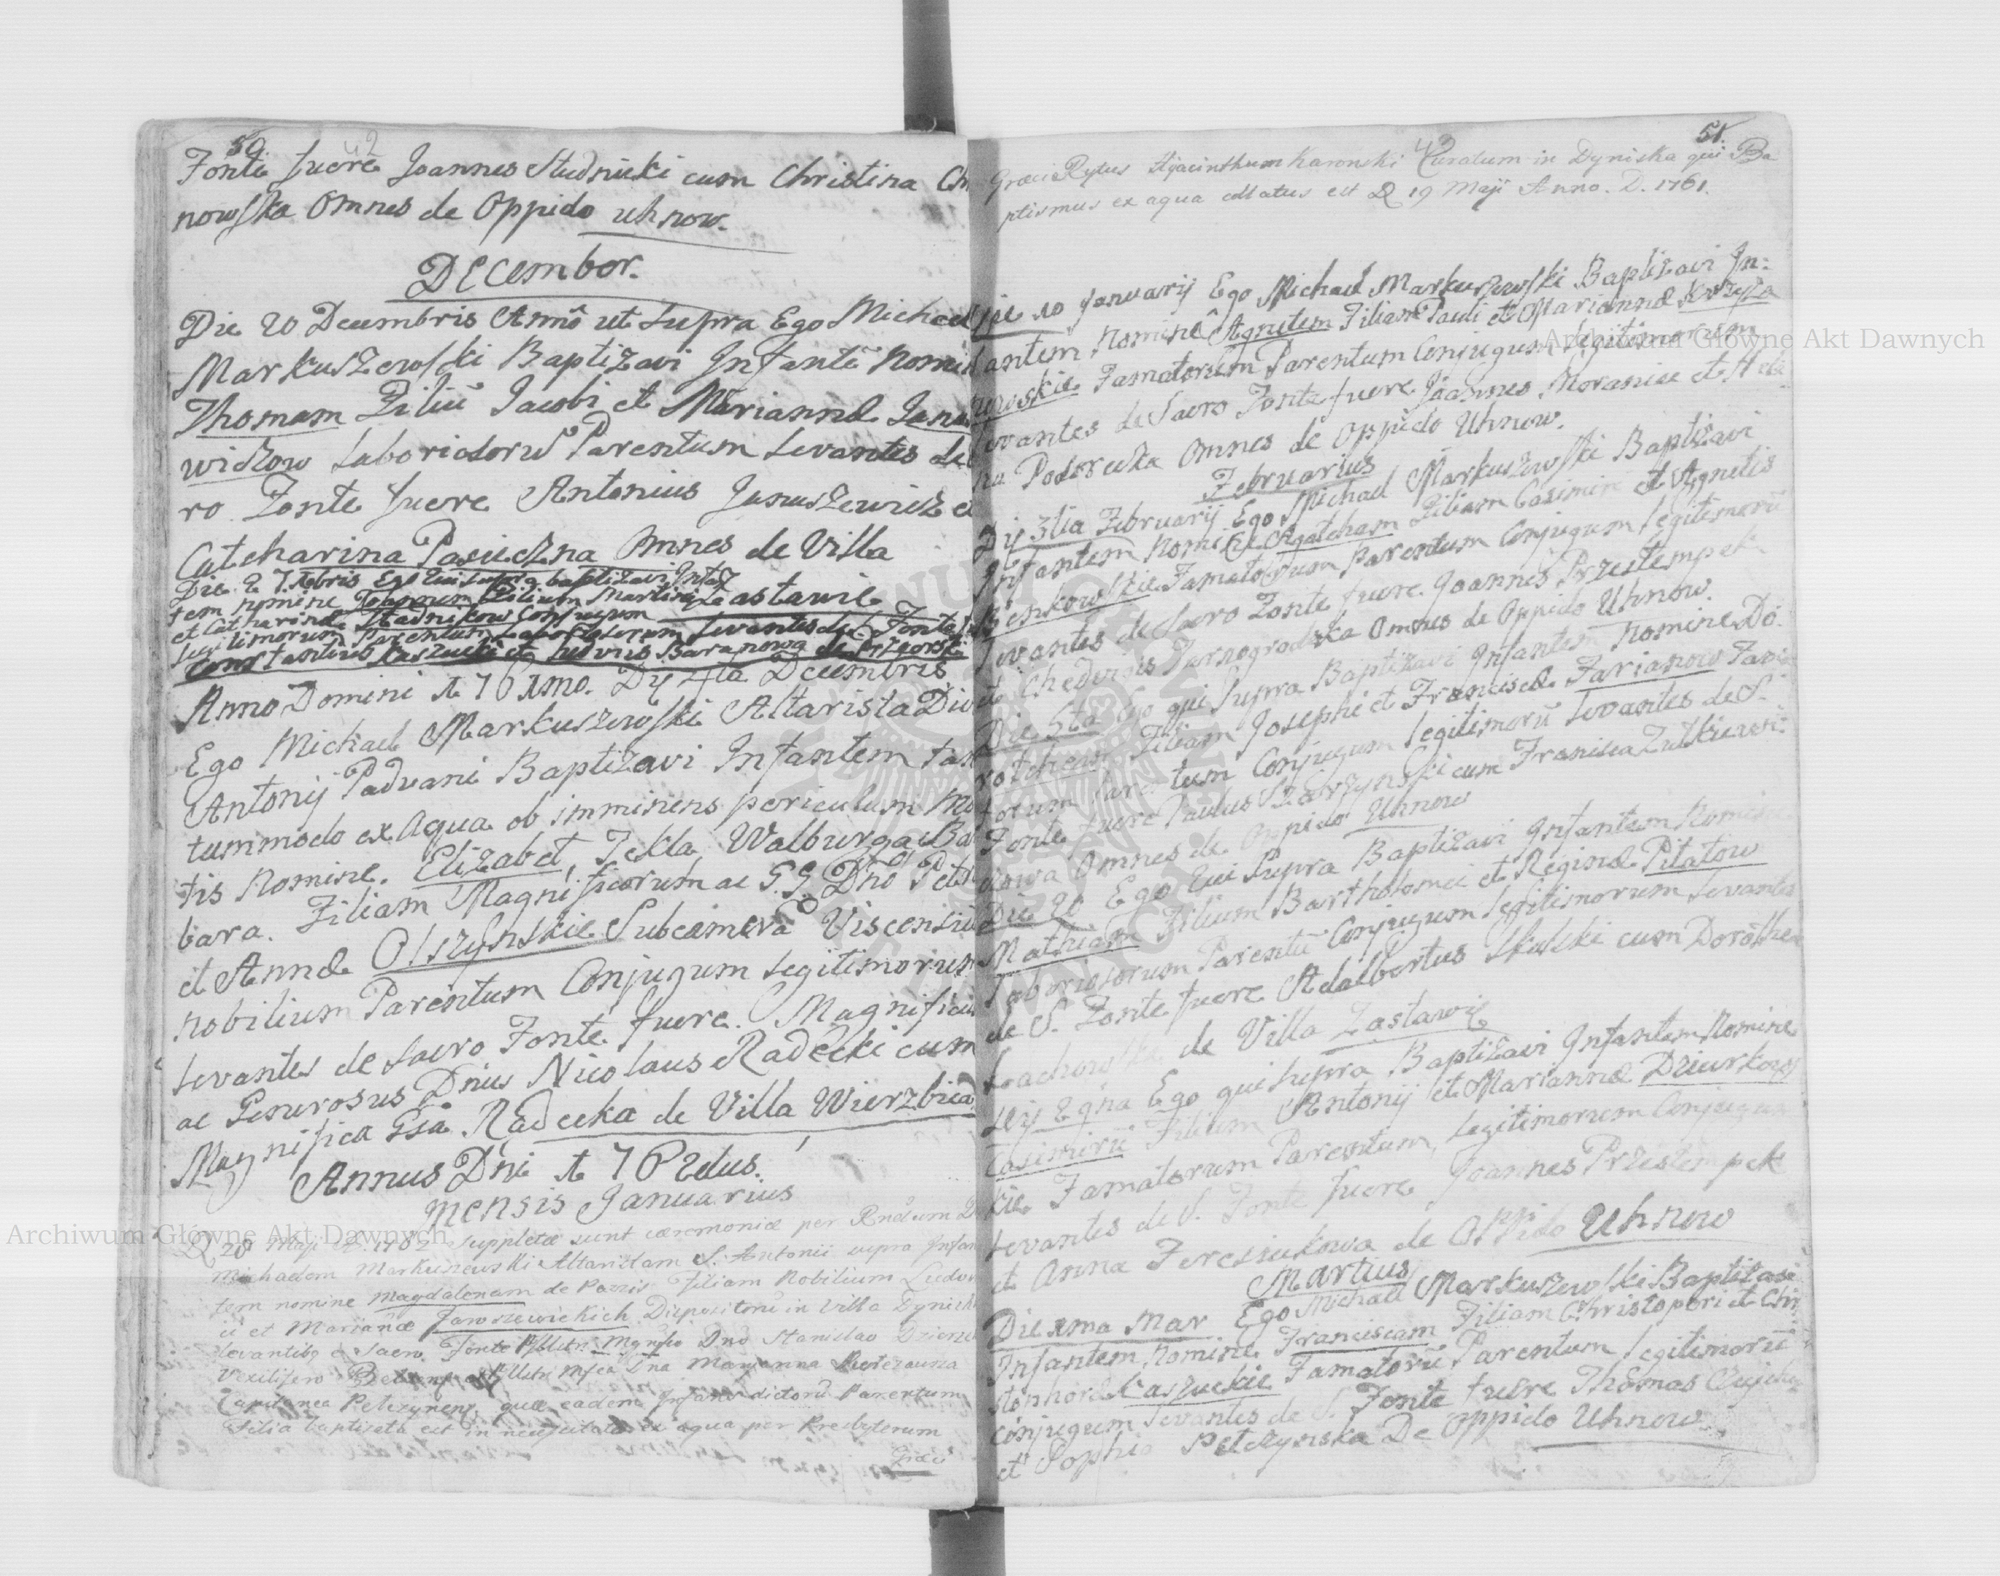 50.
42
Fonte fuere Joannes Studnicki cum Christina
nowska Omnes de Oppido uhnow.
December.
Die 20 Decembris Anno ut supra Ego Michael
Markuszewski Baptizavi Infantē Nomi
Thomam Filiū Jacobi et Mariannæ Janu
wiczow Laboriosorū Parentum Levantes de
ro Fonte fuere Antonius Januszewicz e
Catcharina Pasieczna Omnes de Villa
Die 27 Xbris Ego qui supra baptizavi Infaz
tem nomine Joannem Filium Martini Zastawie
et Catharinæ Stadnikow Conjugum
Legitimorum Parentum Laboriosorum Levantes de S. Fonte
Constantinus Kaszucki et Baranowa de
Anno Domini 1761mo. Dij 4ta Decembris
Ego Michael Markuszewski Altarista Div
Antonij Paduani Baptizavi Infantem tan
tummodo ex Aqua ob imminens periculum Mo
tis Nomine. Elizabet, Tekla Walburga Ba
bara. Filiam Magnificorum ac G.G. Dnō Pet
et Annæ Olszynskie Subcamera Viscensiu
Nobilium Parentum Conjugum Legitimorum
Levantes de Sacro Fonte fuere. Magnificu
ac Generosus Dnus Nicolaus Radecki cum
Magnifica Gsa Radecka de Villa Wierzbica
Annus Dni 1762dus.
Mensis Januarius
D 28 Maji A. 1762 Suppletæ sunt cæremoniæ per Rndum D
Michaelem Markuszewski Altaristam S. Antonii supra Infan
tem nomine Magdalenam de Pazzis Filiam Nobilium Ludov
ii et Marianæ Jaroszewickich Dispositorū in Villa Dynisk
levantibq e Sacro Fonte Mgnfco Dno Stanislao
Vexilifero Belzensi et Mfca Dna Marianna
Capitanea quæ eadem Infans dictorū Parentum
Filia baptizata est in necessitate ex aqua per Presbyterum
Græci
51.
43
Græci Rytus Hyacinthum Karonski Curatum in Dyniska qui Ba
ptismus ex aqua collatus est D 19 Maji Anno. D. 1761.
Die 10 Januarij Ego Michael Markuszewski Baptizavi In:
fantem Nomine Agnetem Filiam Pauli et Mariannæ Krzyża
nowskie Famatorum Parentum Conjugum Legitimorum
Levantes de Sacro Fonte fuere Joannes et Hele
na Podorecka Omnes de Oppido Uhnow.
Februarius
Dij 3tia Februarij Ego Michael Markuszewski Baptizavi
Infantem Nomine Agatcham Filiam Casimiri et Agnetis
Bienkowskie Famatorum Parentum Conjugum Legitimorū
Levantes de Sacro Fonte fuere Joannes Przestempek
et Chedvigis Tarnogrodzka Omnes de Oppido Uhnow.
Die 5ta Ego qui supra Baptizavi Infantem Nomine Do:
rotcheam Filiam Josephi et Franciscæ Farianow Fam
torum Parentum Conjugum Legitimorū Levantes de S.
Fonte fuere Paulus cum Francisca
nowa Omnes de Oppido Uhnow
Die 20 Ego Qui Supra Baptizavi Infantem Nomine
Mathiam Filium Bartholomei et Reginæ Pitatow
Laboriosorum Parentū Conjugum Legitimorum Levantes
de S. Fonte fuere Adalbertus Skulski cum Dorothea
de Villa Zastawie
Ego qui supra Baptizavi Infantem Nomine
Casimirū Filium Antonij et Mariannæ Dziurkows
kie Famatorum Parentum, Legitimorum Conjugum
Levantes de S. Fonte fuere Joannes Przestempek
et Anna Feresiukowa de Oppido Uhnow
Martius
Die 1ma Mar Ego Michael Markuszewski Baptizavi
Infantem Nomine Franciscam Filiam Christopori et Chri
stophoræ Kaszuckie Famatorū Parentum Legitimorū
Conjugum Levantes de S. Fonte fuere Thomas
et Sophia Petczynska De Oppido Uhnow.
Archiwum Główne Akt Dawnych
Archiwum Główne Akt Dawnych